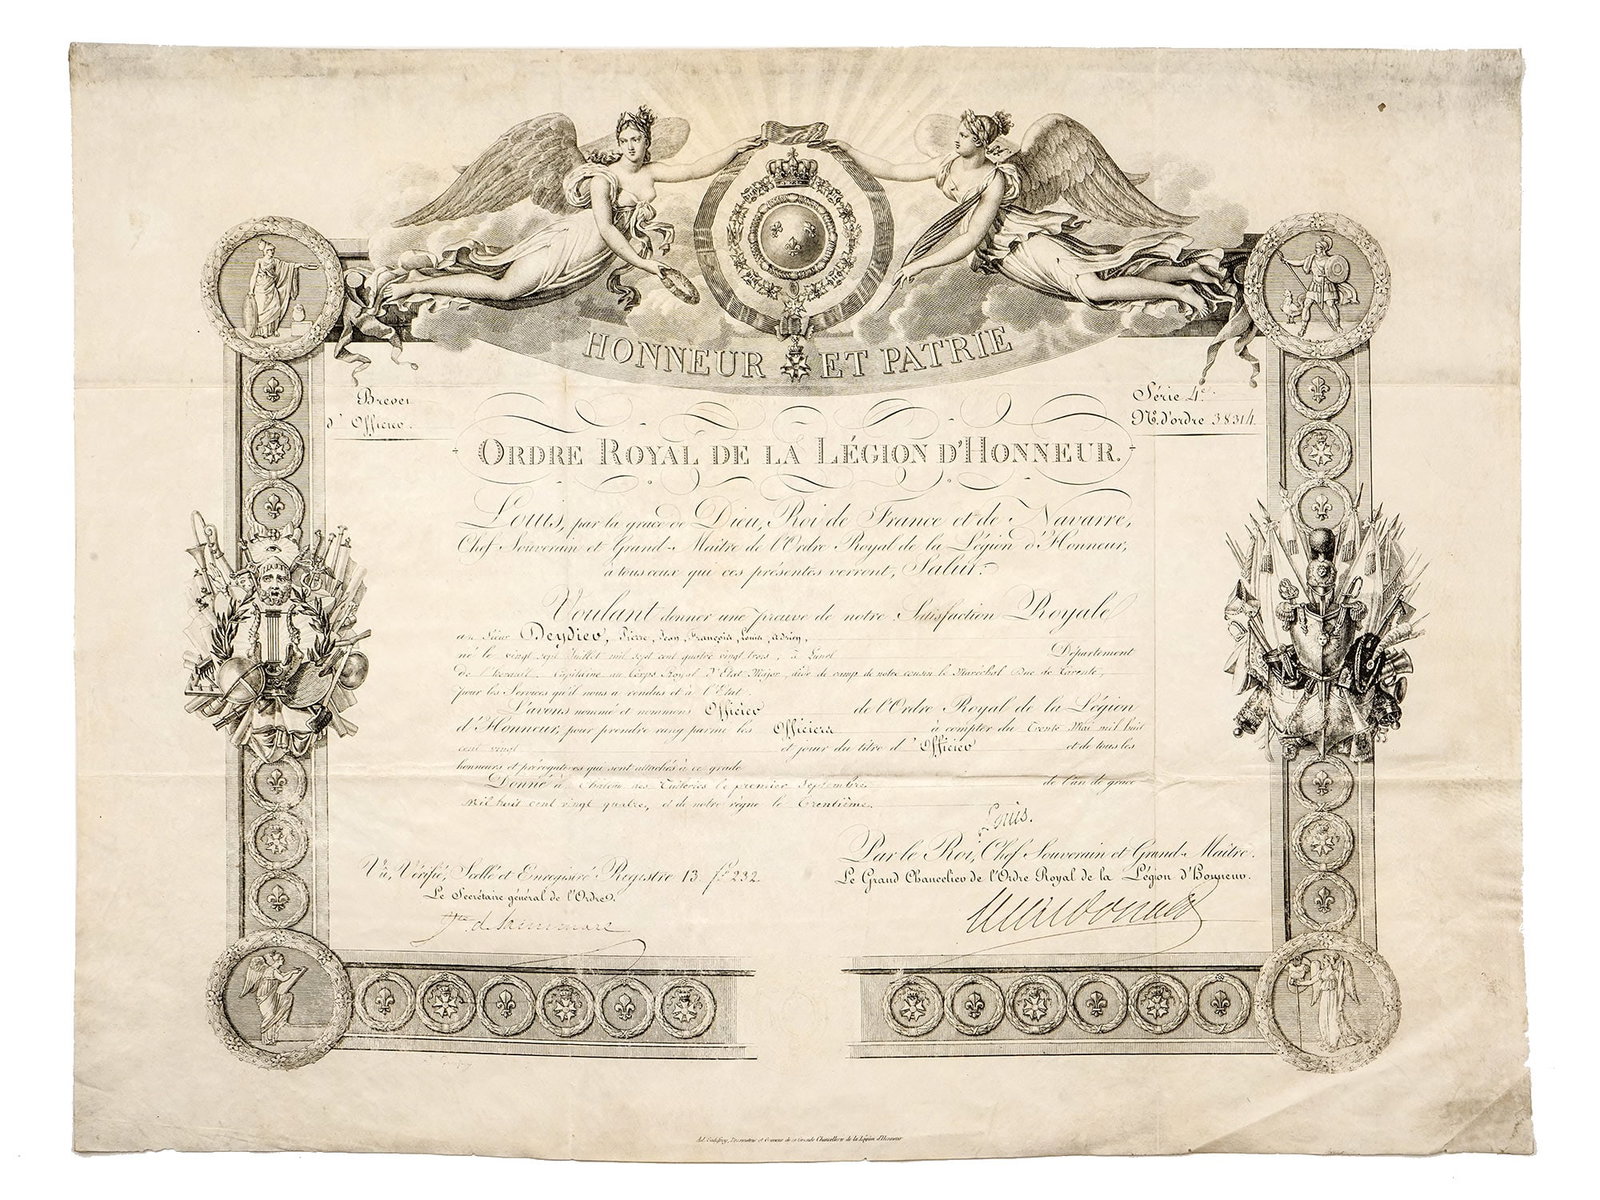 HONNEUR ET PATRIE
Brevet
d'Officier.
Série 4e.
No. d'ordre 38314.
ORDRE ROYAL DE LA LÉGION D'HONNEUR.
Louis, par la grace de Dieu, Roi de France et de Navarre,
Chef Souverain et Grand-Maître de l'Ordre Royal de la Légion d'Honneur,
à tous ceux qui ces présentes verront, Salut.
Voulant donner une preuve de notre Satisfaction Royale
au Sieur Deydier, Pierre, Jean, François, Louis, Adrien,
né le vingt sept Juillet mil sept cent quatre vingt trois, à Département
de l'herault, Capitaine au Corps Royal d'Etat Major, aide de camp de notre cousin le Maréchal Duc de Tarente,
pour les Services qu'il nous a rendus et à l'Etat.
L'avons nommé et nommons Officier de l'Ordre Royal de la Légion
d'Honneur, pour prendre rang parmi les Officiers à compter du Trente Mai mil huit
cent vingt et jouir du titre d'Officier et de tous les
honneurs et prérogatives qui sont attachés à ce grade
Donné à Chateau des Tuileries le premier Septembre de l'an de grace
mil huit cent vingt quatre, et de notre règne le Trentième.
Louis.
Par le Roi, Chef Souverain et Grand-Maître.
Vu, Vérifié, Scellé et Enregistré Registre 13 fo 232
Le Grand Chancelier de l'Ordre Royal de la Légion d'Honneur.
Le Secrétaire général de l'Ordre.
Vte. de Saint mars
Macdonald
Ad. Godefroy, Dessinateur et Graveur de la Grande Chancellerie de la Légion d'Honneur